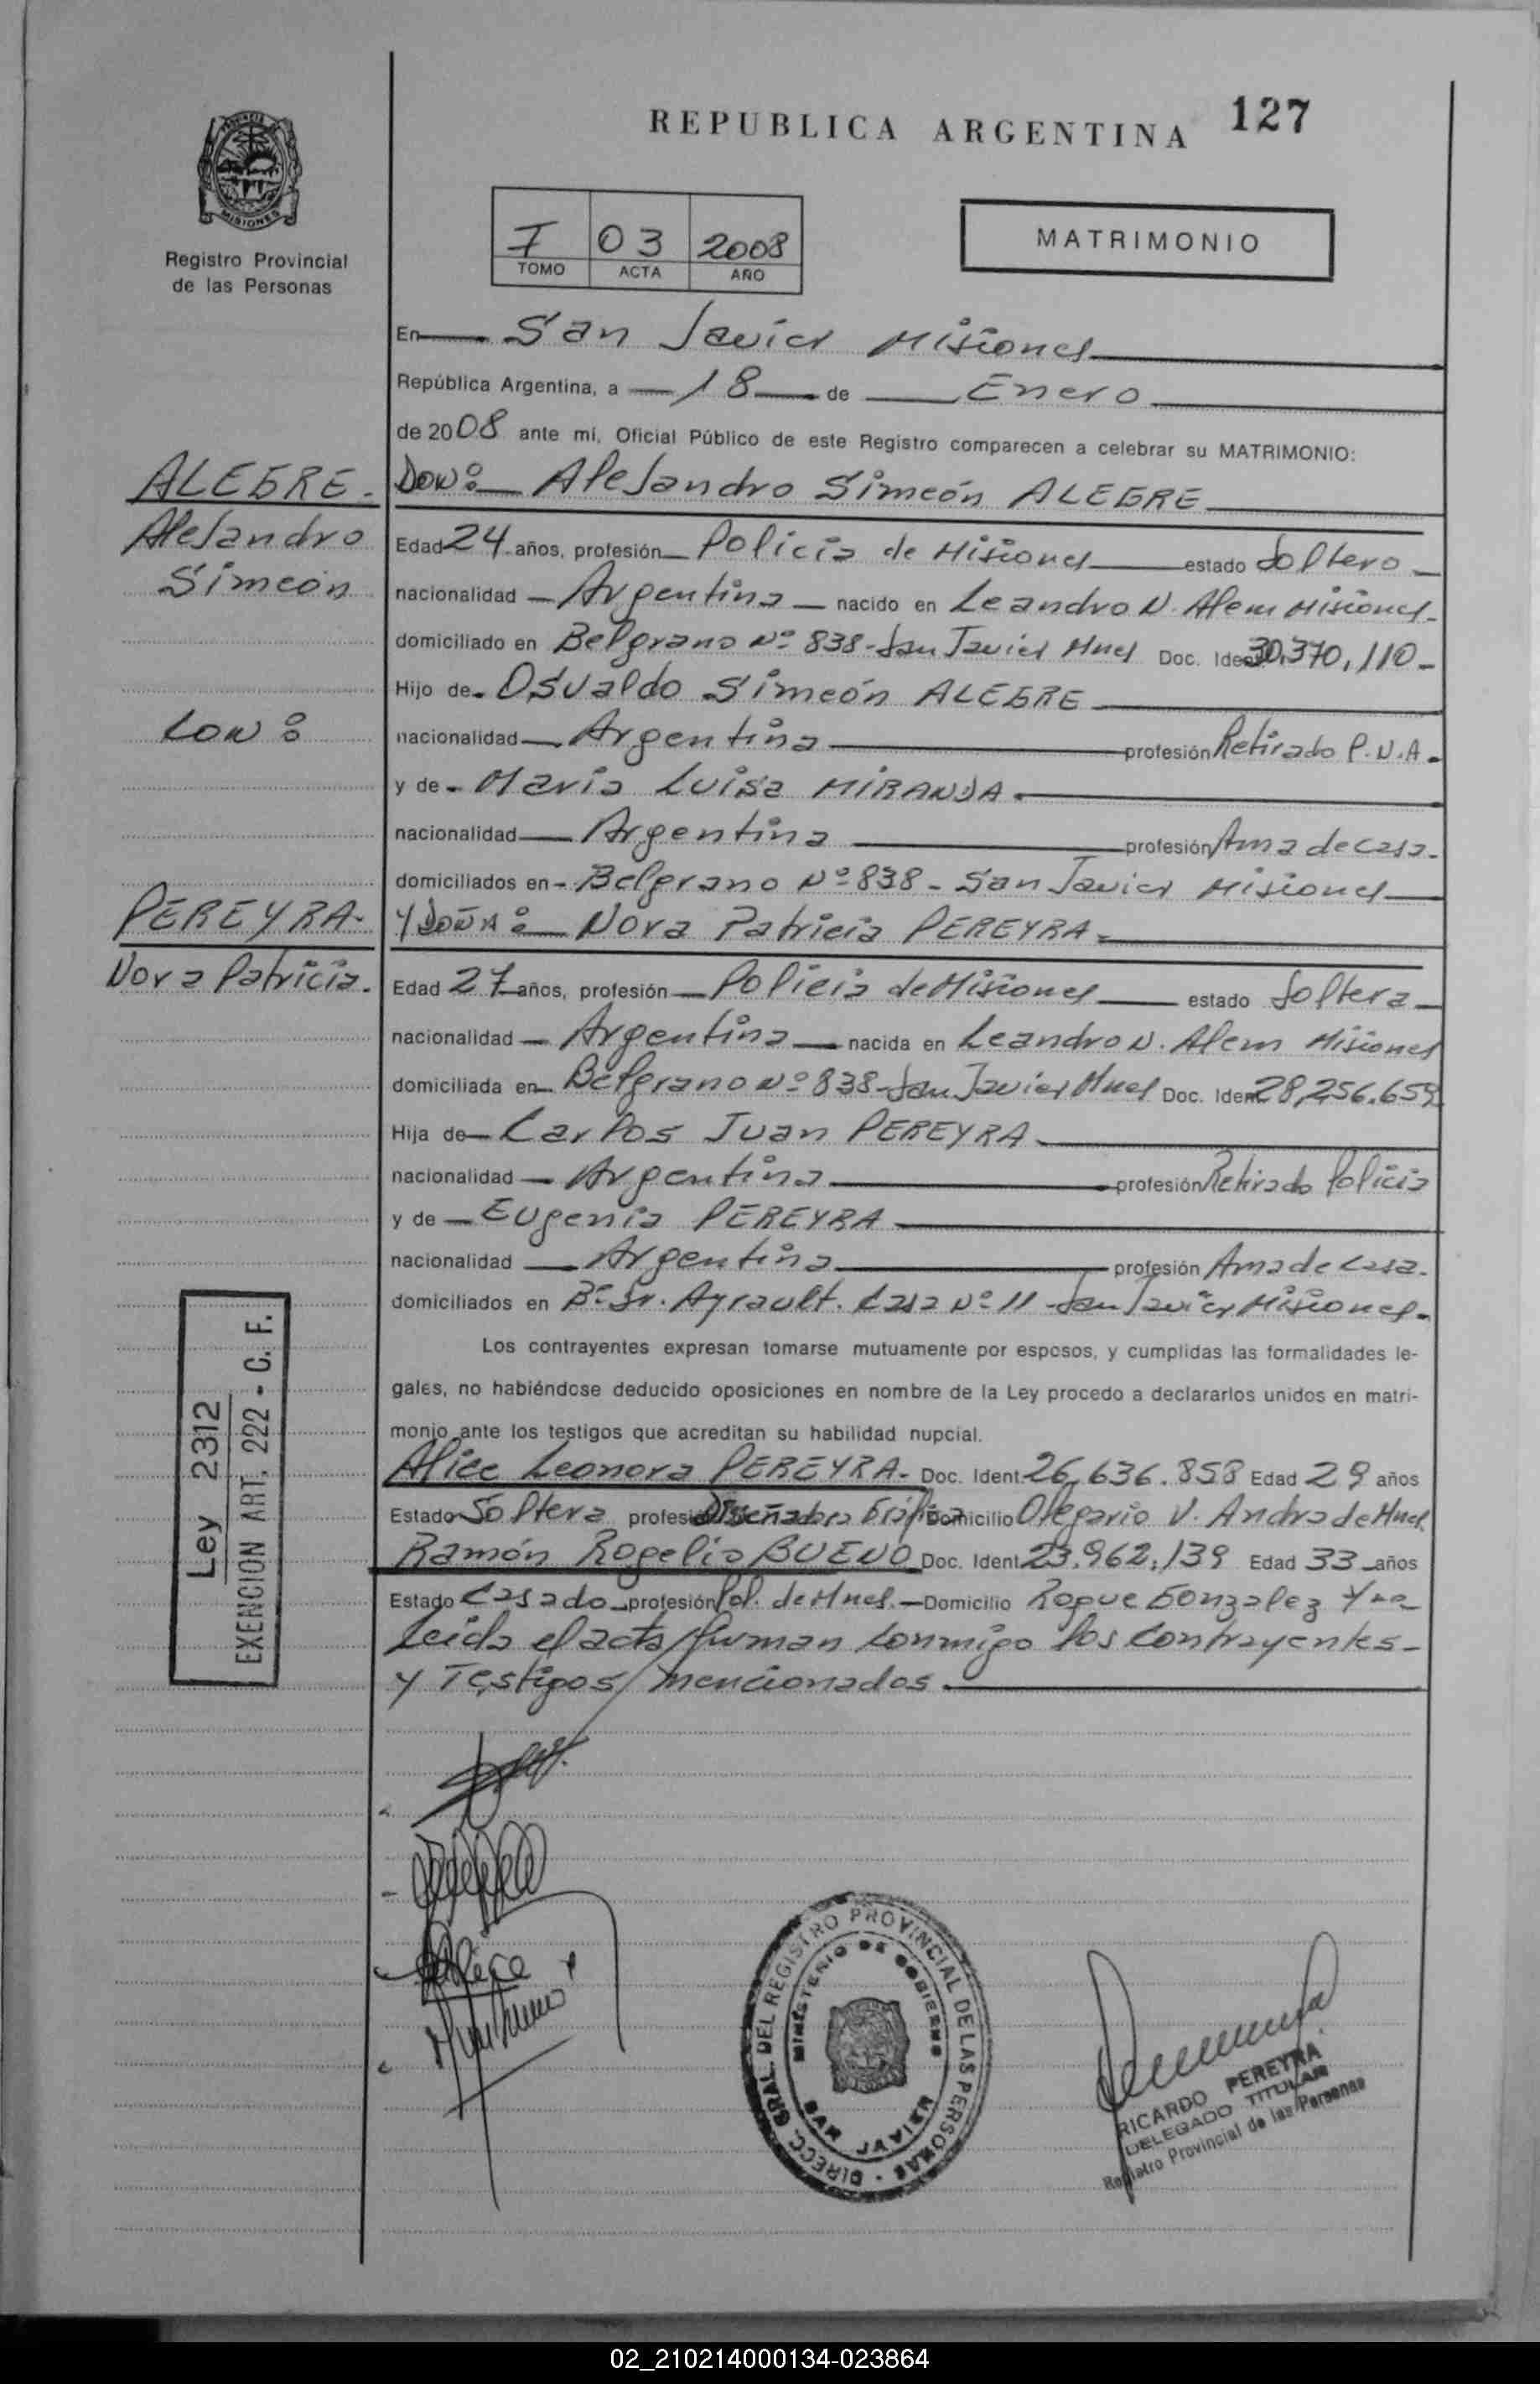 REPUBLICA ARGENTINA 127
MISIONES
Registro Provincial
de las Personas
I 03 2008
TOMO ACTA AÑO
MATRIMONIO
En San Javier Misiones
República Argentina, a 18 de Enero
de 2008 ante mí, Oficial Público de este Registro comparecen a celebrar su MATRIMONIO:
ALEGRE.
Alejandro
Simeón
Con:
PEREYRA.
Nora Patricia.
Don: Alejandro Simeón ALEGRE
Edad 24 años, profesión Policia de Misiones estado Soltero
nacionalidad Argentina nacido en Leandro N. Alem Misiones.
domiciliado en Belgrano Nº 838 - San Javier Mnes Doc. Ident. 30.370.110
Hijo de Osvaldo Simeón ALEGRE
nacionalidad Argentina profesión Retirado P.N.A.
y de Maria Luisa MIRANDA.
nacionalidad Argentina profesión Ama de casa.
domiciliados en Belgrano Nº 838 - San Javier Misiones
Y DOÑA: Nora Patricia PEREYRA
Edad 27 años, profesión Policia de Misiones estado Soltera
nacionalidad Argentina nacida en Leandro N. Alem Misiones
domiciliada en Belgrano Nº 838 - San Javier Mnes Doc. Ident. 28.256.659
Hija de Carlos Juan PEREYRA
nacionalidad Argentina profesión Retirado Policia
y de Eugenia PEREYRA
nacionalidad Argentina profesión Ama de casa.
domiciliados en Bº Dr. Ayrault. Casa Nº 11 - San Javier Misiones.
Los contrayentes expresan tomarse mutuamente por esposos, y cumplidas las formalidades le-
gales, no habiéndose deducido oposiciones en nombre de la Ley procedo a declararlos unidos en matri-
monio ante los testigos que acreditan su habilidad nupcial.
Alice Leonora PEREYRA. Doc. Ident. 26.636.858 Edad 29 años
Estado Soltera profesión Diseñadora Gráfica Domicilio Olegario V. Andrade Mnes.
Ramón Rogelio BUENO Doc. Ident. 23.962.139 Edad 33 años
Estado Casado profesión Pol. de Mnes. Domicilio Roque Gonzalez
Leida el acta firman conmigo los contrayentes
y Testigos mencionados.
Ley 2312
EXENCION ART. 222 - C. F.
DIRECC. GRAL. DEL REGISTRO PROVINCIAL DE LAS PERSONAS
MINISTERIO DE GOBIERNO
SAN JAVIER
RICARDO PEREYRA
DELEGADO TITULAR
Registro Provincial de las Personas
02_210214000134-023864